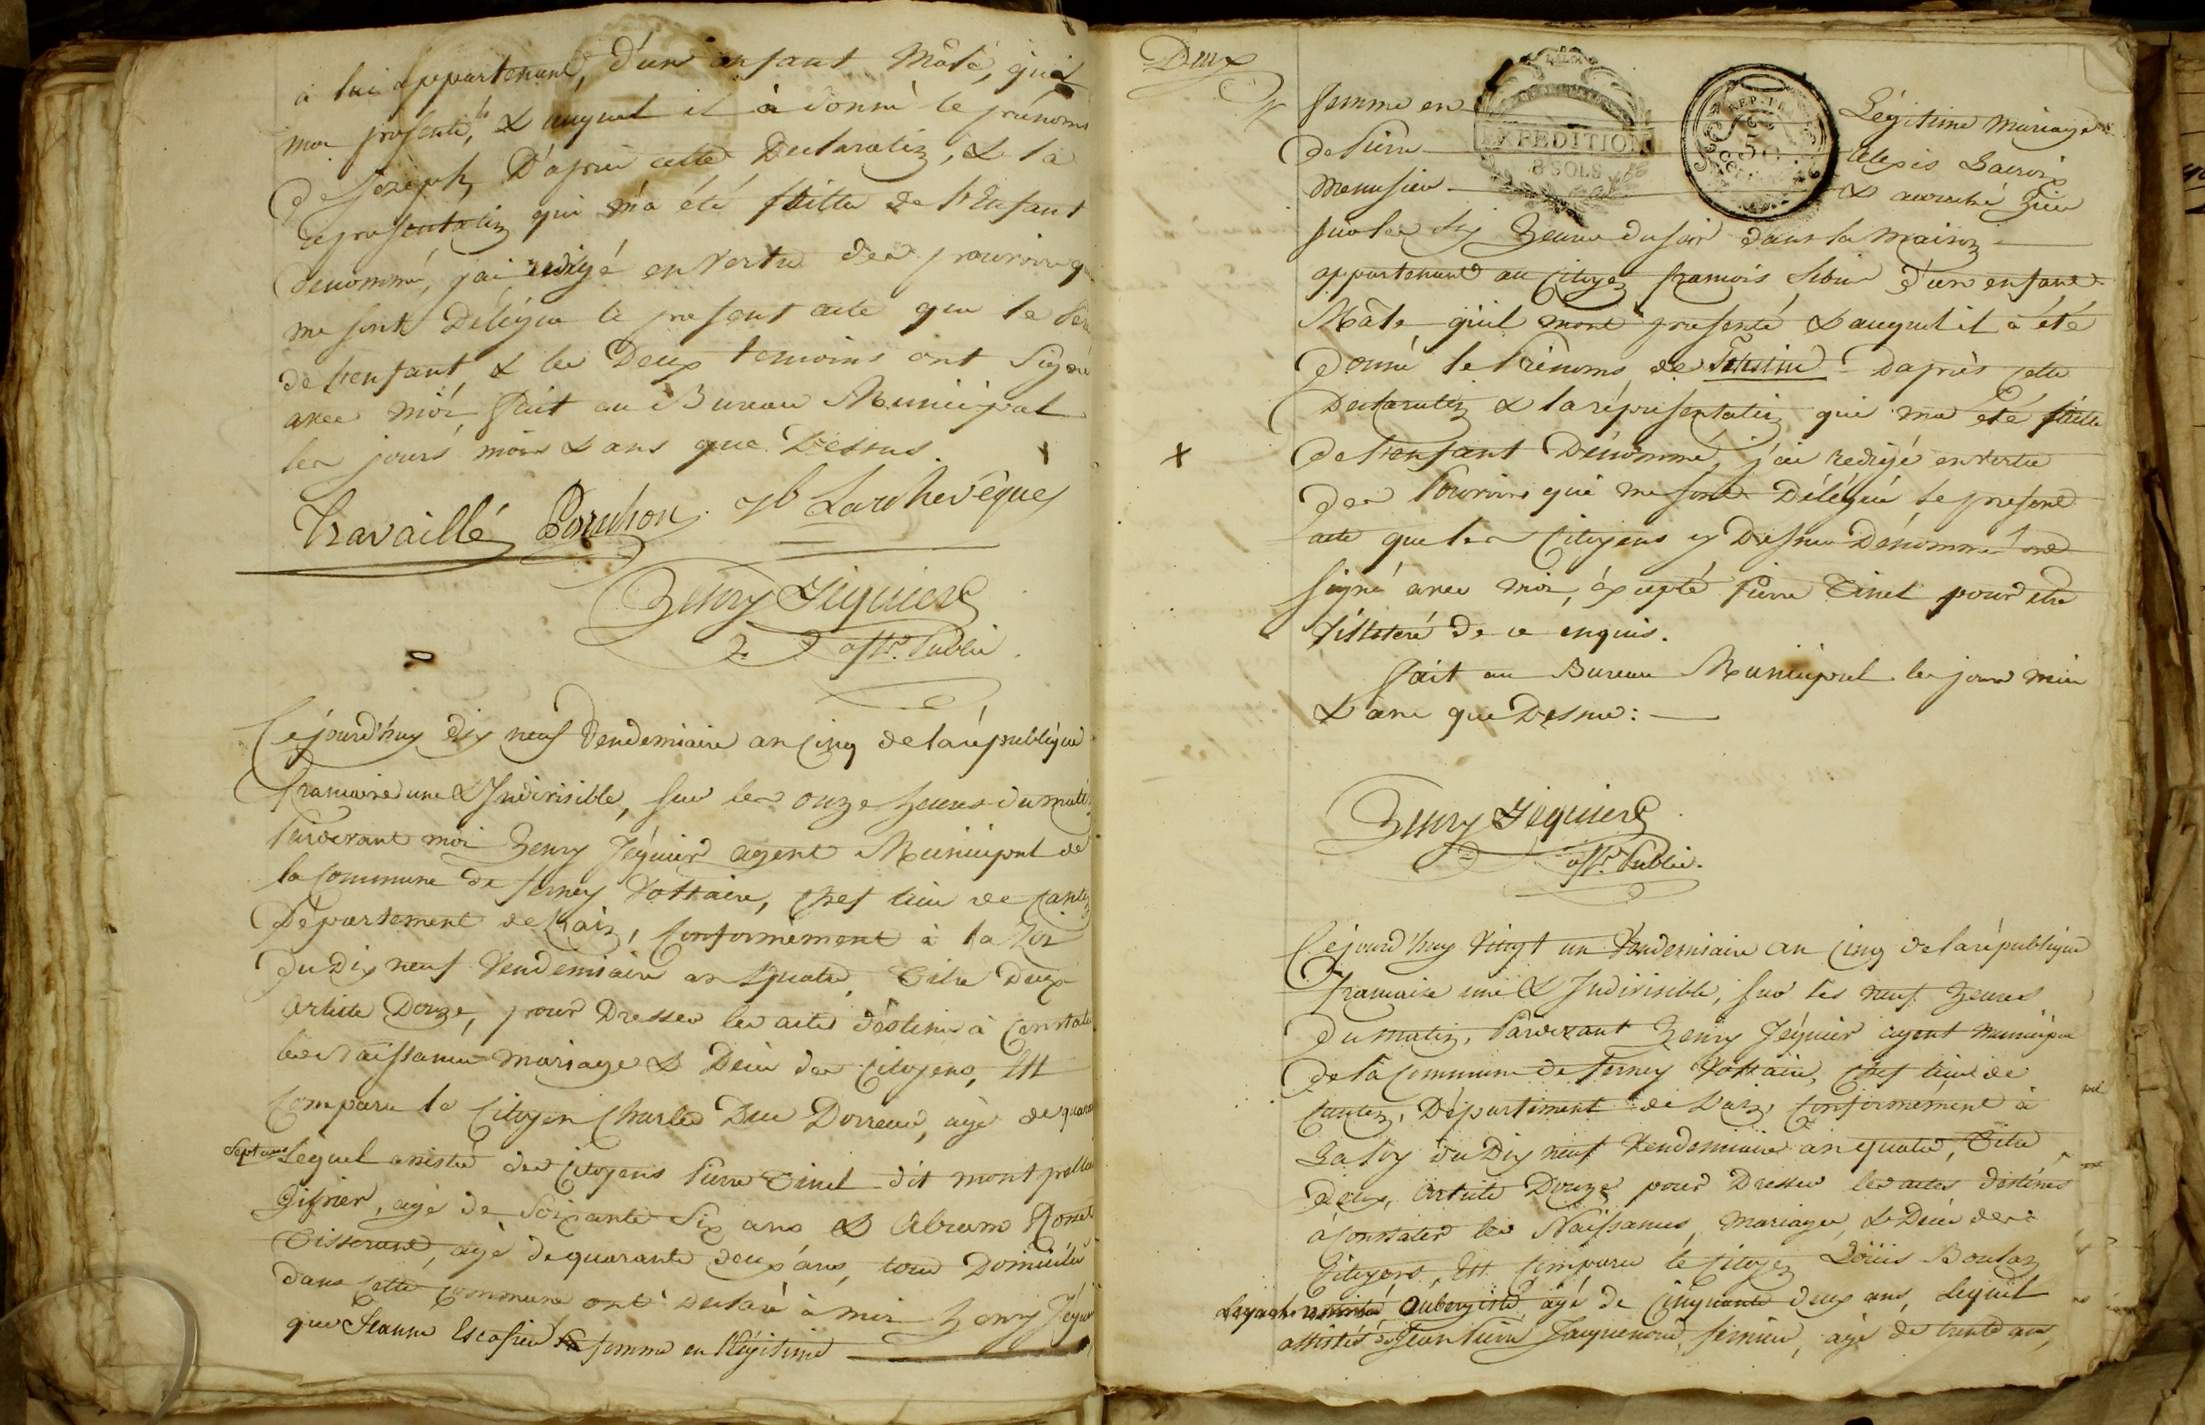 à lui appartenant, d'un enfant Mâle, quil
moi presenté, & auquel il à donné le prénoms
de Joseph, D'après cette Declaration, & la
representation qui m'a été faitte de l'Enfant
denommé, j'ai redigé en vertu des pouvoirs qui
me sont Délégué le present acte que le
de l'enfant & les Deux temoins ont Signé
avec moi, fait au Bureau Municipal
les jours mois & ans que Dessus.
Travaillé Ponchon Larchevêque
Henry Jéquier
offr. Public
Cejourd'huy dix neuf Vendemiaire an Cinq de la république
francaise une & Indivisible, sur les onze heures du matin
Pardevant moi Henry Jéquier agent Municipal de
la Commune de ferney Voltaire, chef lieu de Canton
Département de L'ain, Conformément à la Loi
du Dix neuf Vendemiaire an Quatre, Titre Deux
Article Douze, pour Dresser les actes déstinés à Constater
les Naissances mariage & Décés des Citoyens, Est
Comparu le Citoyen Charles Dorreau, agé de quarante
Sept ans Lequel assisté des Citoyens Pierre Tinel dit mont
Gipsier, agé de Soixante Six ans & Abram
Tisserand, agé de quarante deux ans, tous Domiciliés
dans cette commune ont Declaré à moi Henry Jéquier
que Jeanne femme en Légitime
Deux
femme en Légitime Mariage
de Pierre Alexis Lacroix
Menusier & accouché hier
EXPEDITION
8 SOLS
REP. FRA
50
sur les Six heures du soir dans la Maison
appartenant au Citoyen francois d'un enfant
Mâle quil mont presenté & auquel il à été
donné le Prénoms de D'après cette
Declaration & la représentation qui ma été faitte
de l'enfant Dénommé, j'ai redigé en vertu
des Pouvoirs qui me sont Délégué le present
acte que les Citoyens cy Dessus Dénommé ont
signé avec moi, éxcepté Pierre Tinel pour etre
illiteré de ce enquis.
fait au Bureau Municipal les jour mois
& ans que Dessus:
Henry Jéquier
offr. Public.
Cejourd'huy Vingt un Vendemiaire an Cinq de la république
francaise une & Indivisible, sur les neuf heures
du matin, Pardevant Henry Jéquier agent municipal
de la Commune de ferney Voltaire, chef lieu de
Canton, Département de L'ain, Conformément à
La Loy du Dix neuf Vendemiaire an quatre, Titre
Deux, Article Douze pour Dresser les actes destinés
à Constater les Naissances, mariage, & Décés des
Citoyens, Est Comparu le Citoyen Loüis
Aubergiste, agé de Cinquante deux ans, Lequel
assisté de Jean Pierre fermier, agé de trente ans,